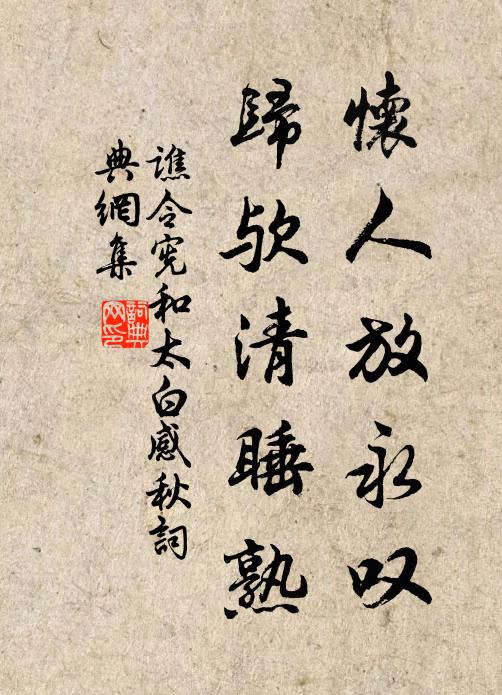 懷人放永叹
歸欤清睡熟
譙令宪和太白感秋詞
典網集
詞典
网印